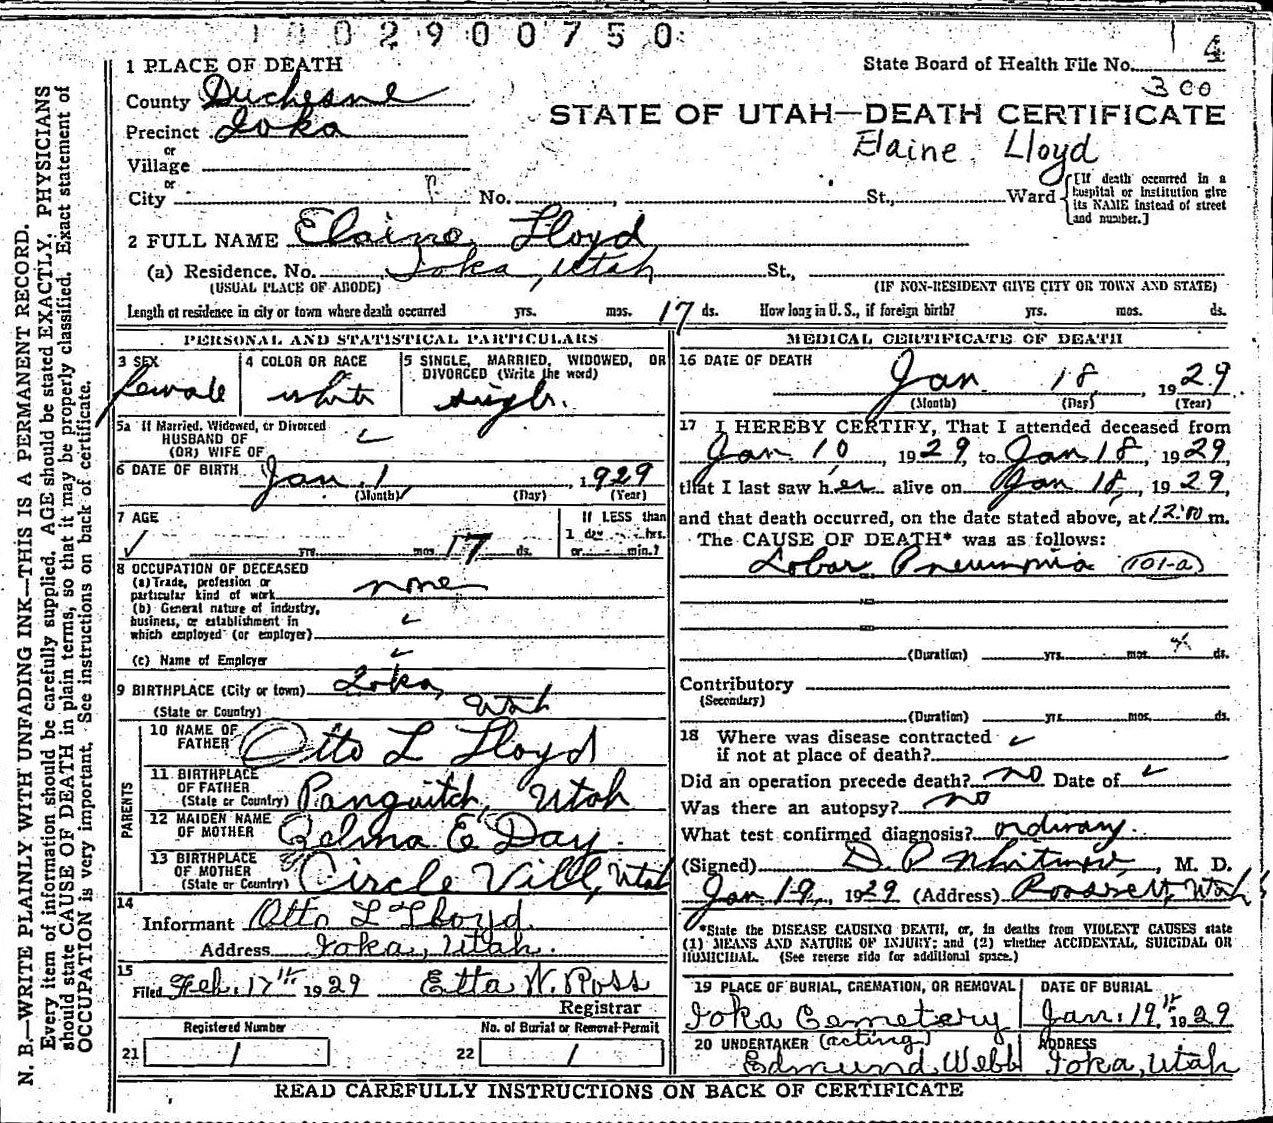 1002900750
4
State Board of Health File No.
300
1 PLACE OF DEATH
County Duchesne
STATE OF UTAH—DEATH CERTIFICATE
Precinct Ioka
Elaine Lloyd
or
Village
or
City No. , St., Ward
[If death occurred in a hospital or institution give its NAME instead of street and number.]
2 FULL NAME Elaine Lloyd
(a) Residence. No. Ioka, Utah St.,
(USUAL PLACE OF ABODE) (IF NON-RESIDENT GIVE CITY OR TOWN AND STATE)
Length of residence in city or town where death occurred yrs. mos. 17 ds. How long in U. S., if foreign birth? yrs. mos. ds.
PERSONAL AND STATISTICAL PARTICULARS
3 SEX female
4 COLOR OR RACE white
5 SINGLE, MARRIED, WIDOWED, OR DIVORCED (Write the word) single.
5a If Married, Widowed, or Divorced
HUSBAND OF
(OR) WIFE OF
6 DATE OF BIRTH Jan. 1, 1929
(Month) (Day) (Year)
7 AGE
yrs. mos. 17 ds.
If LESS than
1 day hrs.
or min.?
8 OCCUPATION OF DECEASED
(a) Trade, profession or
particular kind of work none
(b) General nature of industry,
business, or establishment in
which employed (or employer)
(c) Name of Employer
9 BIRTHPLACE (City or town) Ioka,
(State or Country) Utah
PARENTS
10 NAME OF FATHER Otto L Lloyd
11 BIRTHPLACE OF FATHER (State or Country) Panguitch, Utah
12 MAIDEN NAME OF MOTHER Zelma E Day.
13 BIRTHPLACE OF MOTHER (State or Country) Circle Vill, Utah
14
Informant Otto L Lloyd
Address Ioka, Utah.
15
Filed Feb. 17th 1929 Etta W. Ross
Registrar
Registered Number No. of Burial or Removal Permit
21 1 22 1
MEDICAL CERTIFICATE OF DEATH
16 DATE OF DEATH
Jan. 18, 1929
(Month) (Day) (Year)
17 I HEREBY CERTIFY, That I attended deceased from
Jan 10, 1929, to Jan 18, 1929,
that I last saw her alive on Jan 18, 1929,
and that death occurred, on the date stated above, at 12:00 m.
The CAUSE OF DEATH* was as follows:
Lobar Pneumonia (101-a)
(Duration) yrs. mos. ds.
Contributory
(Secondary)
(Duration) yrs. mos. ds.
18 Where was disease contracted
if not at place of death?
Did an operation precede death? no Date of
Was there an autopsy? no
What test confirmed diagnosis? ordinary.
(Signed) D P Whitmore, M. D.
Jan 19, 1929 (Address) Roosevelt, Utah
*State the DISEASE CAUSING DEATH, or, in deaths from VIOLENT CAUSES state
(1) MEANS AND NATURE OF INJURY; and (2) whether ACCIDENTAL, SUICIDAL OR
HOMICIDAL. (See reverse side for additional space.)
19 PLACE OF BURIAL, CREMATION, OR REMOVAL DATE OF BURIAL
Ioka Cemetery Jan. 19th 1929
20 UNDERTAKER (acting) ADDRESS
Edmund Webb Ioka, Utah
READ CAREFULLY INSTRUCTIONS ON BACK OF CERTIFICATE
N. B.—WRITE PLAINLY WITH UNFADING INK—THIS IS A PERMANENT RECORD.
Every item of information should be carefully supplied. AGE should be stated EXACTLY. PHYSICIANS
should state CAUSE OF DEATH in plain terms, so that it may be properly classified. Exact statement of
OCCUPATION is very important. See instructions on back of certificate.